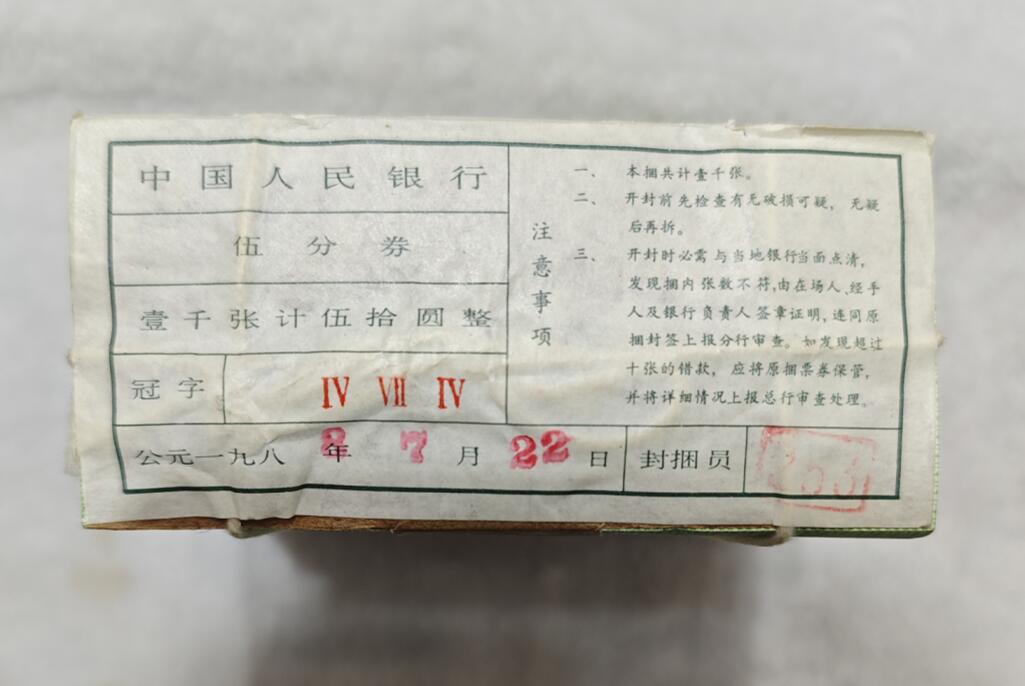 中国人民银行
伍分券
壹千张计伍拾圆整
冠字 IV VII IV
公元一九八2年7月22日 封捆员
注意事项
一、本捆共计壹千张。
二、开封前先检查有无破损可疑，无疑
后再拆。
三、开封时必需与当地银行当面点清，
发现捆内张数不符，由在场人、经手
人及银行负责人签章证明，连同原
捆封签上报分行审查。如发现超过
十张的错款，应将原捆票券保管，
并将详细情况上报总行审查处理。